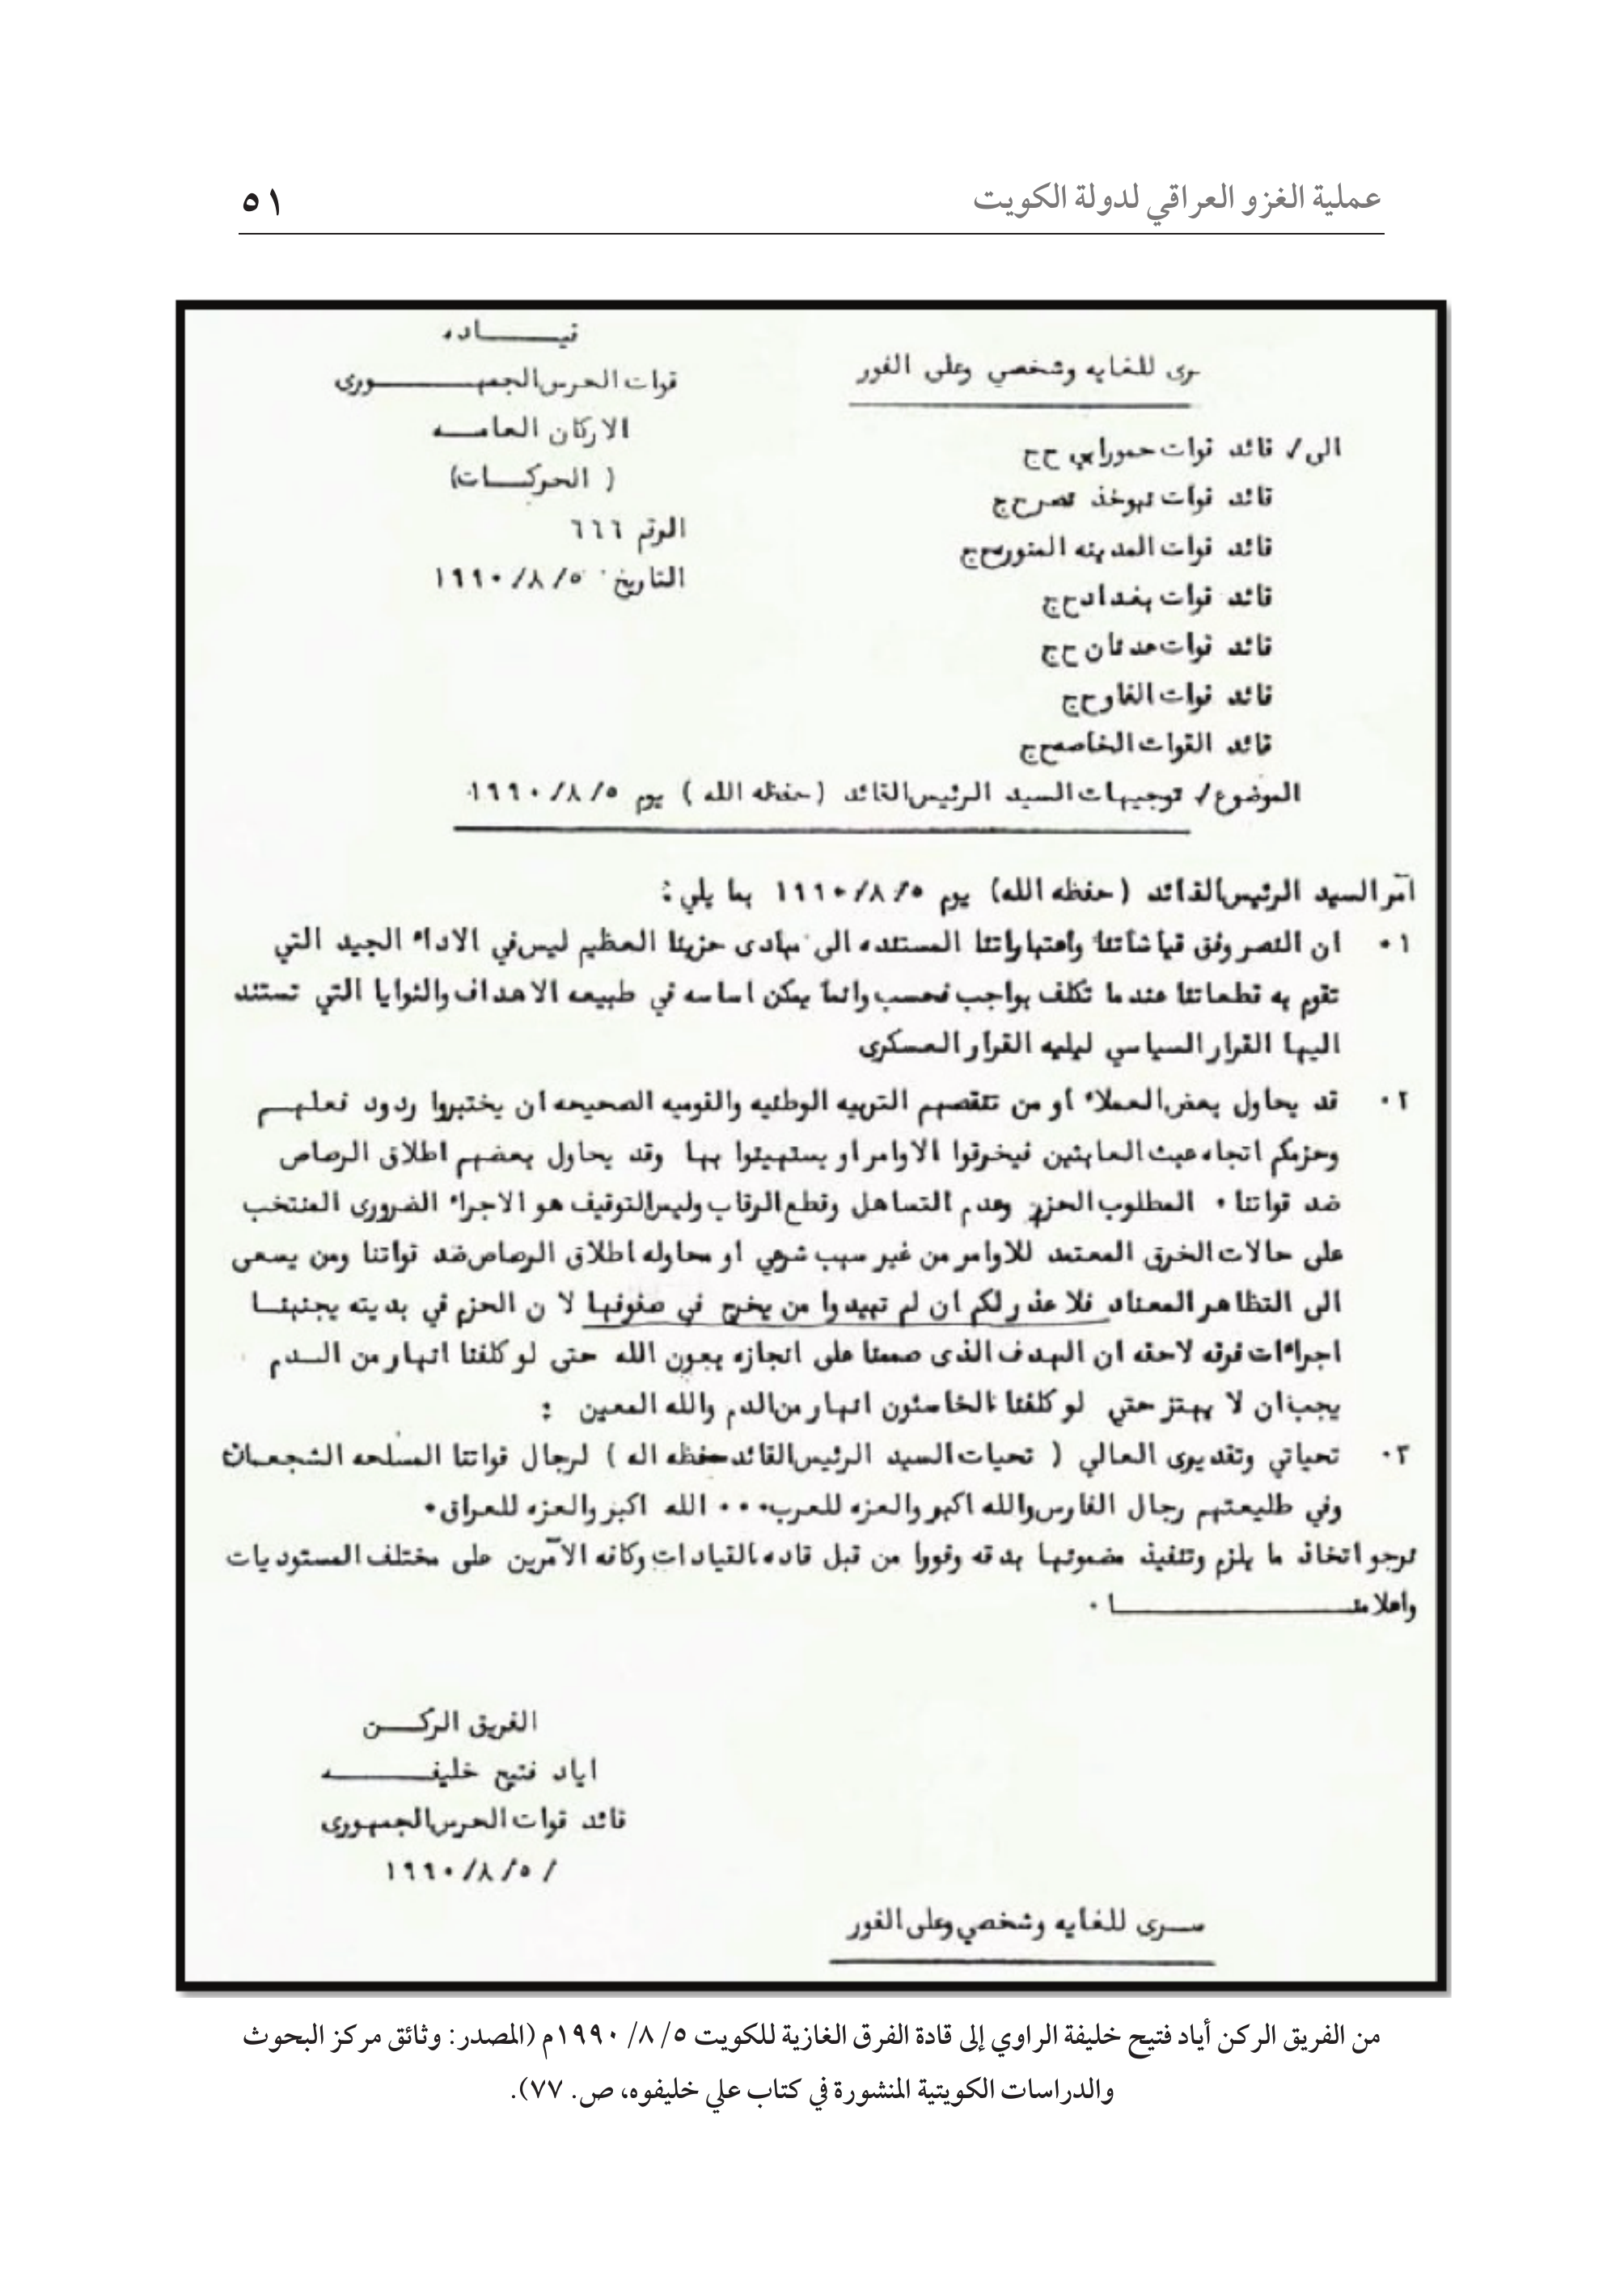 عملية الغزو العراقي لدولة الكويت
٥١
سرى للغايه وشخصي وعلى الفور
قيـــاده
قوات الحرس الجمهـــورى
الاركان العامـــه
( الحركـــات)
الرقم ٦٦٦
التاريخ ١٩٩٠/٨/٥
الى/ قائد قوات حمورابي ح ج
قائد قوات نبوخذ نصر ح ج
قائد قوات المدينه المنوره ح ج
قائد قوات بغداد ح ج
قائد قوات عدنان ح ج
قائد قوات الفاو ح ج
قائد القوات الخاصه ح ج
الموضوع/ توجيهات السيد الرئيس القائد ( حفظه الله ) يوم ١٩٩٠/٨/٥
امر السيد الرئيس القائد (حفظه الله) يوم ١٩٩٠/٨/٥ بما يلي :
٠١ ان النصر وفق قياساتنا واعتباراتنا المستنده الى مبادى حزبنا العظيم ليس في الاداء الجيد التي
تقوم به قطعاتنا عندما تكلف بواجب فحسب وانما يمكن اساسه في طبيعه الاهداف والنوايا التي تستند
اليها القرار السياسي ليليه القرار العسكرى
٠٢ قد يحاول بعض العملاء او من تنقصهم التربيه الوطنيه والقوميه الصحيحه ان يختبروا ردود فعلهـم
وحزمكم اتجاه عبث العابثين فيخرقوا الاوامر او يستهينوا بها وقد يحاول بعضهم اطلاق الرصاص
ضد قواتنا ٠ المطلوب الحزم وعدم التساهل وقطع الرقاب وليس التوقيف هو الاجراء الضرورى المنتخب
على حالات الخرق المعتمد للاوامر من غير سبب شرعي او محاوله اطلاق الرصاص ضد قواتنا ومن يسعى
الى التظاهر المعناد فلا عذر لكم ان لم تبيدوا من يخرج في صفوفها لا ن الحزم في بديته يجنبنـا
اجراءات فرقه لاحقه ان الهدف الذى صممنا على انجازه بعون الله حتى لو كلفنا انهار من الـدم
يجب ان لا يهتز حتي لو كلفنا الخاسئون انهار من الدم والله المعين :
٠٣ تحياتي وتقديرى العالي ( تحيات السيد الرئيس القائد حفظه اله ) لرجال قواتنا المسلحه الشجعـان
وفي طليعتهم رجال الفارس والله اكبر والعزه للعرب ٠٠٠ الله اكبر والعزه للعراق ٠
نرجو اتخاذ ما يلزم وتنفيذ مضمونها بدقه وفورا من قبل قاده القيادات وكافه الآمرين على مختلف المستوديات
واعلامنـــــا ٠
الفريق الركـــن
اياد فتيح خليفـــه
قائد قوات الحرس الجمهورى
/ ١٩٩٠/٨/٥
ســرى للغايه وشخصي وعلى الفور
من الفريق الركن أياد فتيح خليفة الراوي إلى قادة الفرق الغازية للكويت ٥/ ٨/ ١٩٩٠م (المصدر: وثائق مركز البحوث
والدراسات الكويتية المنشورة في كتاب علي خليفوه، ص. ٧٧).